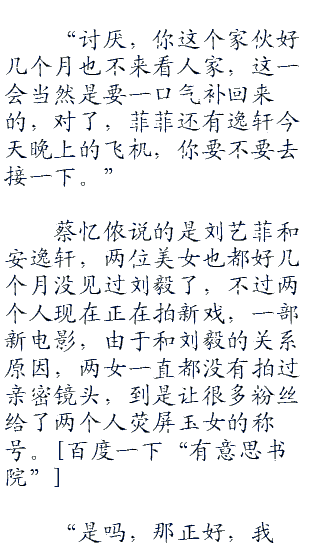 “讨厌，你这个家伙好
几个月也不来看人家，这一
会当然是要一口气补回来
的，对了，菲菲还有逸轩今
天晚上的飞机，你要不要去
接一下。”
蔡忆侬说的是刘艺菲和
安逸轩，两位美女也都好几
个月没见过刘毅了，不过两
个人现在正在拍新戏，一部
新电影，由于和刘毅的关系
原因，两女一直都没有拍过
亲密镜头，到是让很多粉丝
给了两个人荧屏玉女的称
号。[百度一下“有意思书
院”]
“是吗，那正好，我